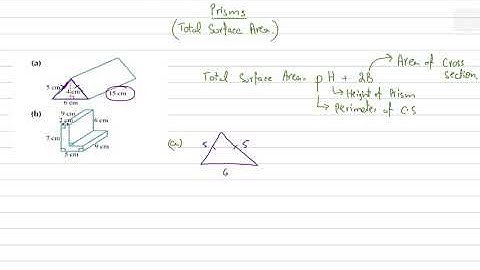 Prisms
(Total Surface Area)
(a)
5 cm
4cm
15 cm
6 cm
(b)
9 cm
2 cm
6 cm
7 cm
9 cm
5 cm
Area of Cross
section.
Total Surface Area = pH + 2B
Height of Prism
Perimeter of C.S
(a)
5
5
6